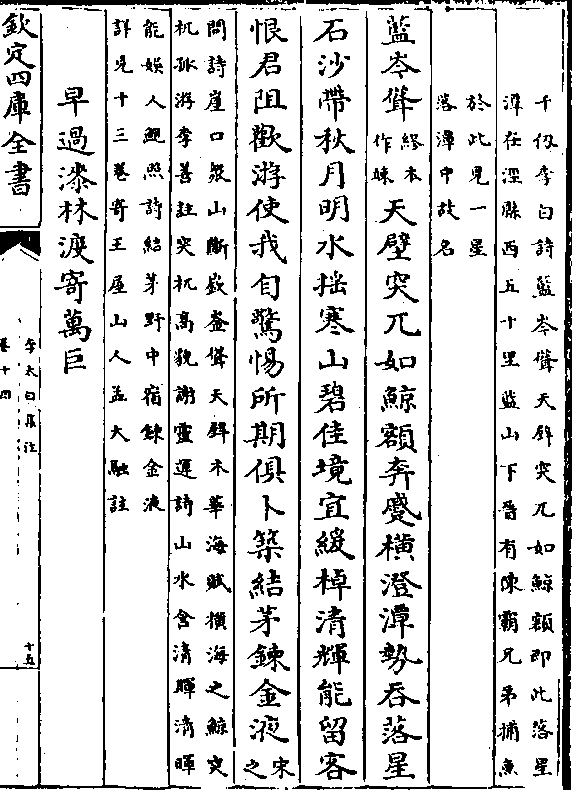 千仭李白詩藍岑聳天壁突兀如鯨額即此落星
潭在涇縣西五十里藍山下晉有陳霸兄弟捕魚
於此見一星
落潭中故名
藍岑聳繆本作竦天壁突兀如鯨額奔蹙橫澄潭勢吞落星
石沙帶秋月明水揺寒山碧佳境宜緩棹清輝能留客
恨君阻歡游使我自驚惕所期俱卜築結茅鍊金液宋之
問詩崖口衆山斷嶔崟聳天壁木華海賦横海之鯨突
杌孤游李善註突杌高貌謝靈運詩山水含清暉清暉
能娛人鮑照詩結茅野中宿鍊金液
詳見十三巻寄王屋山人孟大融註
早過漆林渡寄萬巨
欽定四庫全書
李太白集注
卷十四
十五